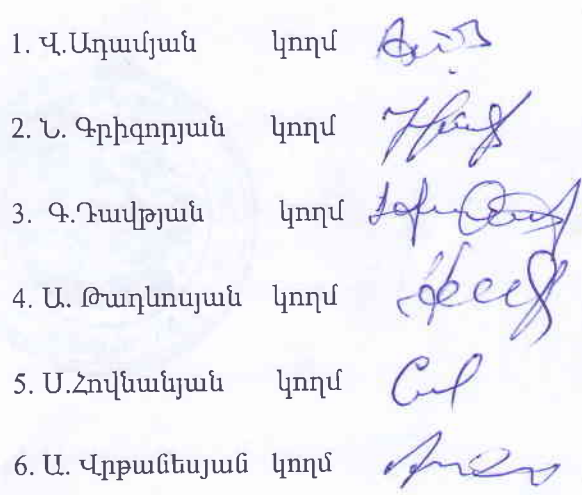 1. Վ.Ադամյան կողմ
2. Ն. Գրիգորյան կողմ
3. Գ.Դավթյան կողմ
4. Ա. Թադևոսյան կողմ
5. Ս.Հովնանյան կողմ
6. Ա. Վրթանեսյան կողմ